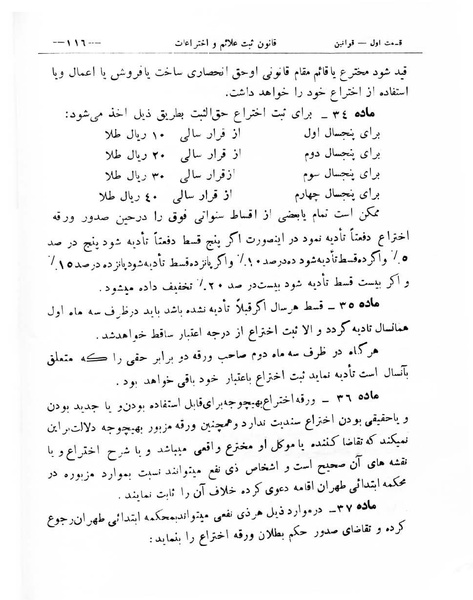 قسمت اول — قوانین قانون ثبت علائم و اختراعات —۱۱۶—
قید شود مخترع یاقائم مقام قانونی اوحق انحصاری ساخت یافروش یا اعمال ویا
استفاده از اختراع خود را خواهد داشت.
ماده ۳۴ـ برای ثبت اختراع حق‌الثبت بطریق ذیل اخذ می‌شود:
برای پنجسال اول از قرار سالی ۱۰ ریال طلا
برای پنجسال دوم از قرار سالی ۲۰ ریال طلا
برای پنجسال سوم ازقرار سالی ۳۰ ریال طلا
برای پنجسال چهارم از قرار سالی ۴۰ ریال طلا
ممکن است تمام یابعضی از اقساط سنواتی فوق را درحین صدور ورقه
اختراع دفعتاً تأدیه نمود در اینصورت اگر پنج قسط دفعتاً تأدیه شود پنج در صد
۵٪ واگرده‌قسط‌تأدیه‌شود ده‌درصد ۱۰٪ واگر پانزده‌قسط تأدیه‌شود پانزده درصد ۱۵٪
و اگر بیست قسط تأدیه شود بیست‌در صد ۲۰٪ تخفیف داده میشود.
ماده ۳۵ ـ قسط هرسال اگرقبلاً تأدیه نشده باشد باید درظرف سه ماه اول
همانسال تادیه گردد و الا ثبت اختراع از درجه اعتبار ساقط خواهدشد.
هرگاه در ظرف سه ماه دوم صاحب ورقه دو برابر حقی را که متعلق
بآنسال است تأدیه نماید ثبت اختراع باعتبار خود باقی خواهد بود.
ماده ۳۶ ـ ورقه اختراع بهیچوجه برای‌قابل استفاده بودن‌و یا جدید بودن
و یاحقیقی بودن اختراع سندیت ندارد وهمچنین ورقه مزبور بهیچوجه دلالت‌براین
نمیکند که تقاضا کننده یا موکل او مخترع واقعی میباشد و یا شرح اختراع و یا
نقشه های آن صحیح است و اشخاص ذی نفع میتوانند نسبت بموارد مزبوره در
محکمه ابتدائی طهران اقامه دعوی کرده خلاف آن را ثابت نمایند.
ماده ۳۷ـ درموارد ذیل هرذی نفعی میتواند بمحکمه ابتدائی طهران‌رجوع
کرده و تقاضای صدور حکم بطلان ورقه اختراع را بنماید: